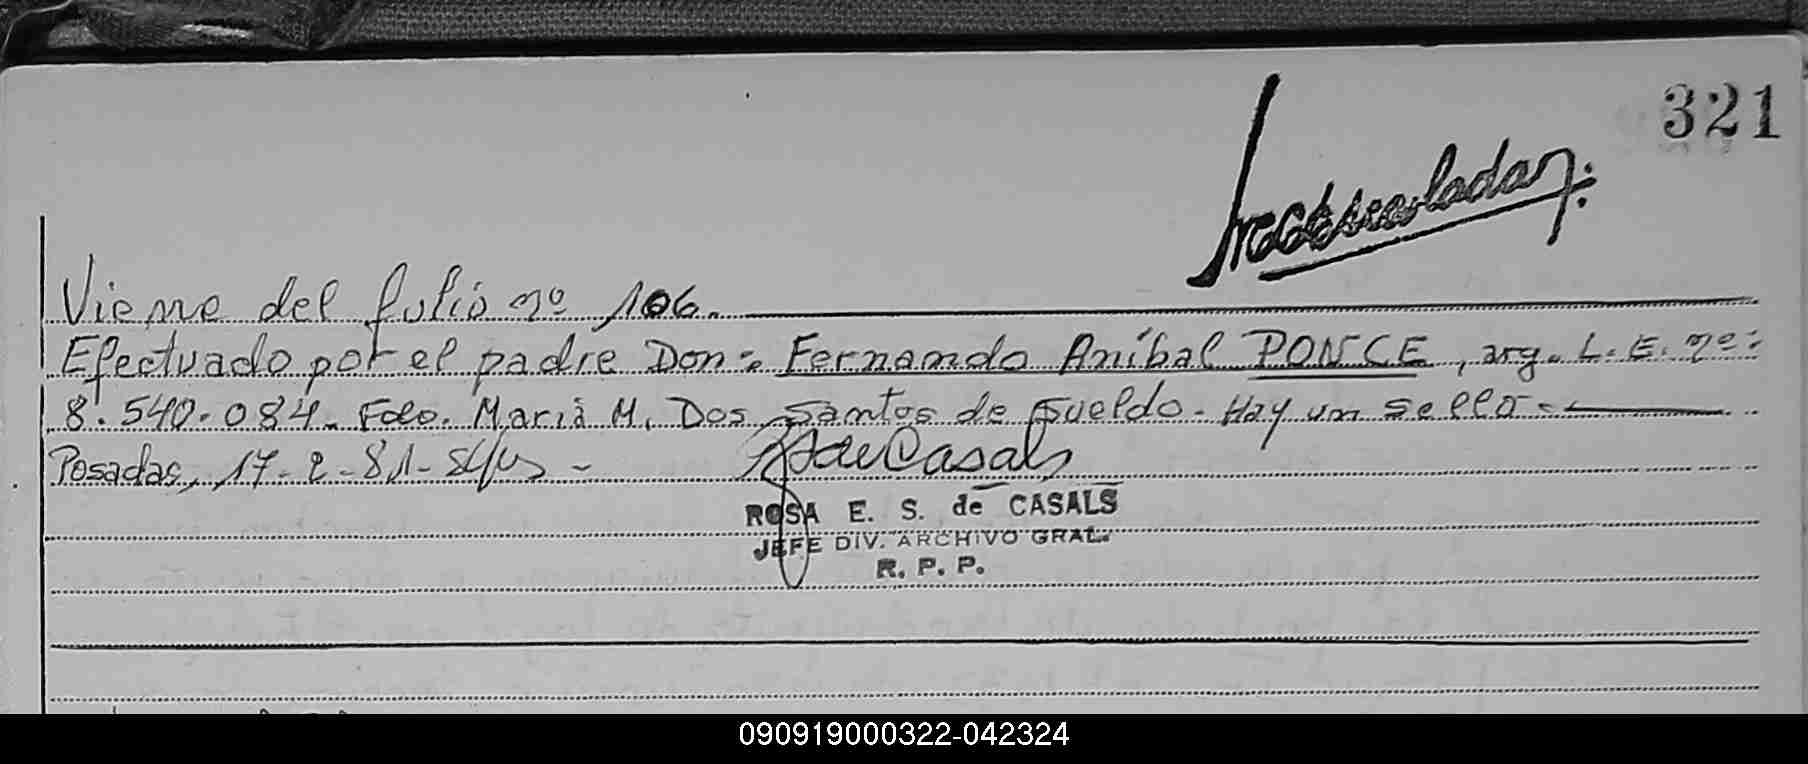 321
Viene del folio nº 106.
Efectuado por el padre Don:. Fernando Aníbal PONCE, arg. L. E. nº:
8.540.084. Fdo. María M. Dos Santos de Sueldo. Hay un sello.-
Posadas, 17-2-81-
de Casals
ROSA E. S. de CASALS
JEFE DIV. ARCHIVO GRAL.
R. P. P.
090919000322-042324